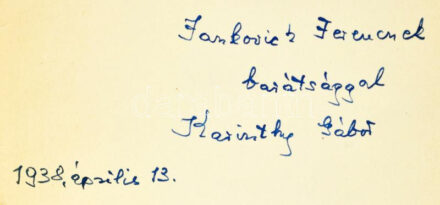 Jankovich Ferencnek
barátsággal
Karinthy Gábor
1938. április 13.